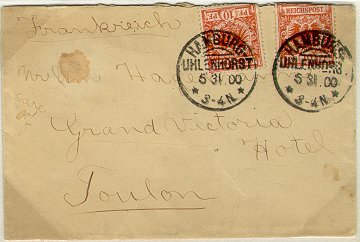 Frankreich
10 PF
REICHSPOST
HAMBURG
UHLENHORST
5 31 00
* 3-4N *
HAMBURG
UHLENHORST
5 31 00
* 3-4N *
care
Grand Victoria
Hotel
Toulon